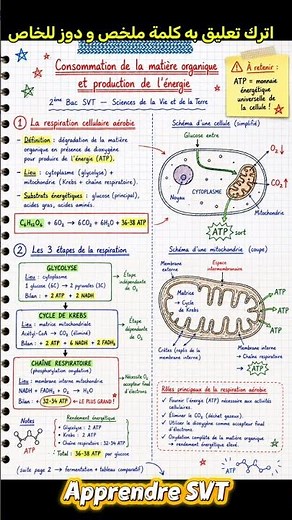 اترك تعليق به كلمة ملخص و دوز للخاص
Consommation de la matière organique
et production de l'énergie
2ème Bac SVT — Sciences de la Vie et de la Terre
À retenir :
ATP = monnaie
énergétique
universelle de
la cellule !
1 La respiration cellulaire aérobie
• Définition : dégradation de la matière
organique en présence de dioxygène
pour produire de l'énergie (ATP).
• Lieu : cytoplasme (glycolyse) +
mitochondrie (Krebs + chaîne respiratoire).
• Substrats énergétiques : glucose (principal),
acides gras, acides aminés.
C₆H₁₂O₆ + 6O₂ → 6CO₂ + 6H₂O + 36-38 ATP
Schéma d'une cellule (simplifié)
Glucose entre
O₂
CO₂
CYTOPLASME
Noyau
Mitochondrie
ATP sort
2 Les 3 étapes de la respiration
GLYCOLYSE
Lieu : cytoplasme
1 glucose (6C) → 2 pyruvates (3C)
Bilan : + 2 ATP + 2 NADH
Étape
indépendante
de O₂
CYCLE DE KREBS
Lieu : matrice mitochondriale
Acétyl-CoA → CO₂ (éliminé)
Bilan : + 2 ATP + 6 NADH + 2 FADH₂
Étape
dépendante
de O₂
CHAÎNE RESPIRATOIRE
(phosphorylation oxydative)
Lieu : membrane interne mitochondrie
NADH + FADH₂ + O₂ → H₂O
Bilan : + 32-34 ATP ← LE PLUS GRAND !
Nécessite O₂
accepteur final
d'électrons
Schéma d'une mitochondrie (coupe)
Membrane
externe
Espace
intermembranaire
Matrice
→ Cycle
de Krebs
Crêtes (replis de la
membrane interne)
Membrane interne
→ Chaîne respiratoire
(ATP)
Notes
ATP
Rendement énergétique
• Glycolyse : 2 ATP
• Krebs : 2 ATP
• Chaîne respiratoire : 32-34 ATP
Total : 36-38 ATP par glucose
Rôles principaux de la respiration aérobie
✓ Fournir l'énergie (ATP) nécessaire aux activités
cellulaires.
✓ Éliminer le CO₂ (déchet gazeux).
✓ Utiliser le dioxygène comme accepteur final
d'électrons.
✓ Oxydation complète de la matière organique
→ rendement énergétique élevé.
(suite page 2 → fermentation + tableau comparatif)
ATP
Apprendre SVT